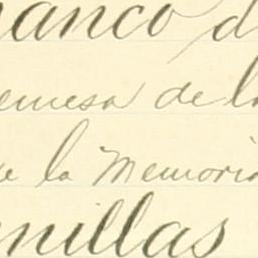 anco d
emesa de la
e la Memoria
nillas